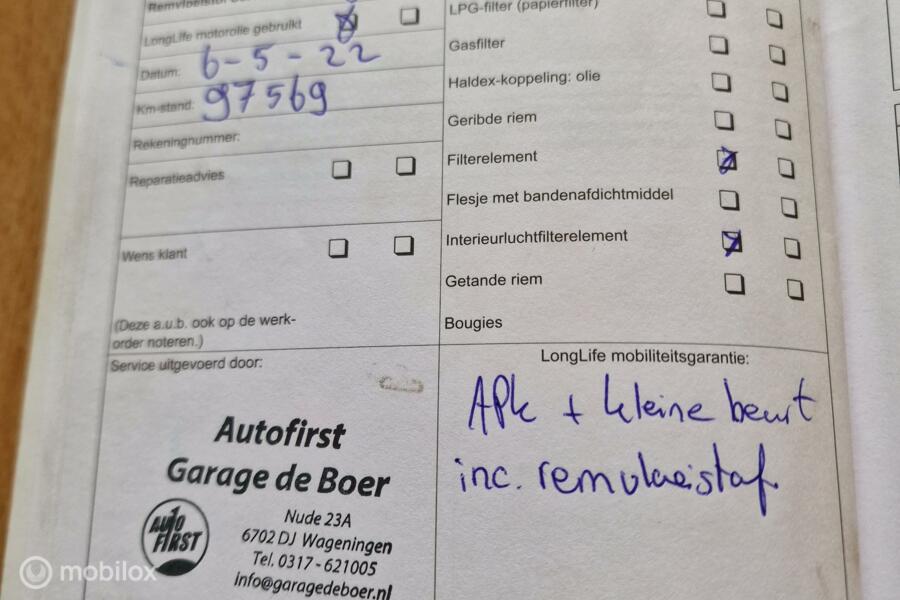 LongLife motorolie gebruikt
Datum: 6-5-22
Km-stand: 97569
Rekeningnummer:
Reparatieadvies
Wens klant
(Deze a.u.b. ook op de werk-
order noteren.)
LPG-filter (papierfilter)
Gasfilter
Haldex-koppeling: olie
Geribde riem
Filterelement
Flesje met bandenafdichtmiddel
Interieurluchtfilterelement
Getande riem
Bougies
Service uitgevoerd door:
Autofirst
Garage de Boer
AUTO
FIRST
Nude 23A
6702 DJ Wageningen
Tel. 0317 - 621005
Info@garagedeboer.nl
LongLife mobiliteitsgarantie:
APk + kleine beurt
inc. remvloeistof.
mobilox